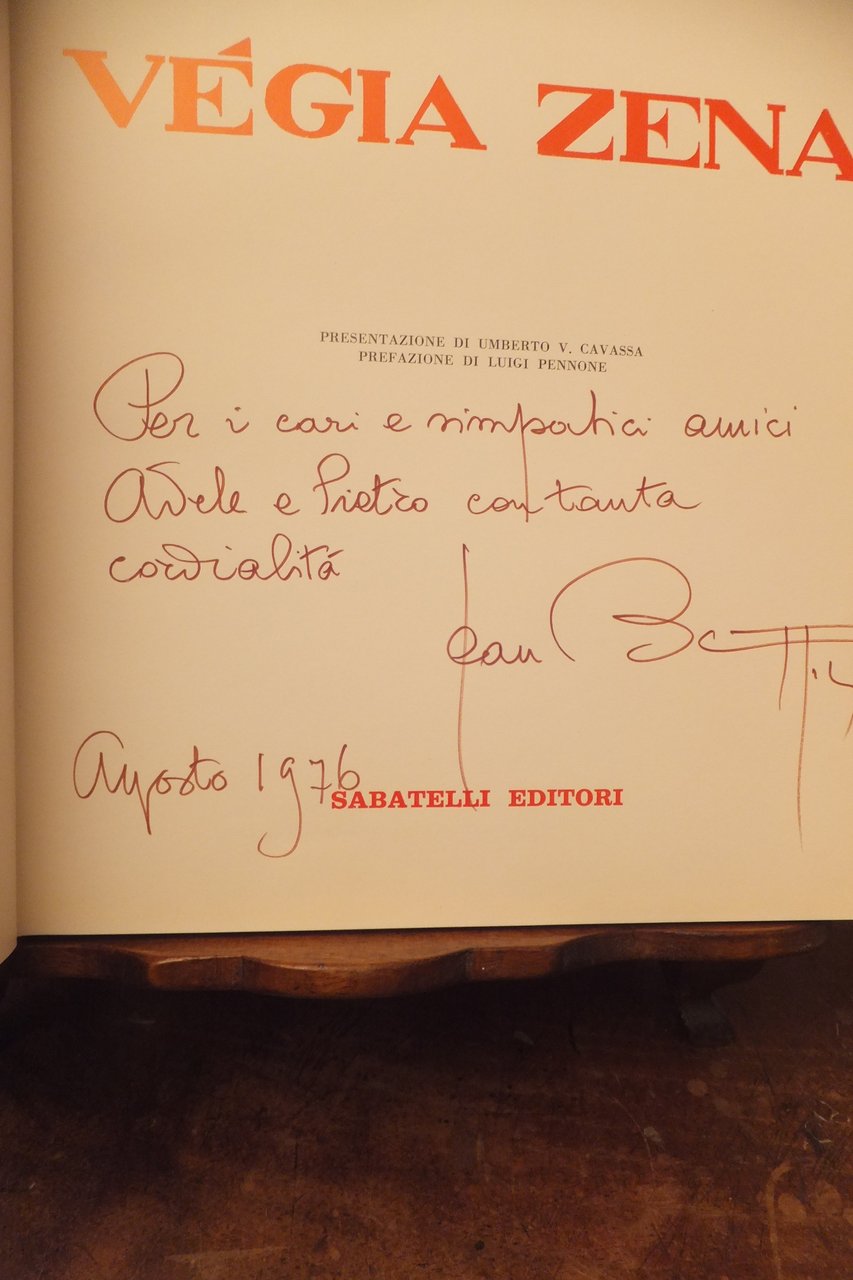 VÉGIA ZENA
PRESENTAZIONE DI UMBERTO V. CAVASSA
PREFAZIONE DI LUIGI PENNONE
Per i cari e simpatici amici
Adele e Pietro con tanta
cordialitá
Jean
Agosto 1976
SABATELLI EDITORI